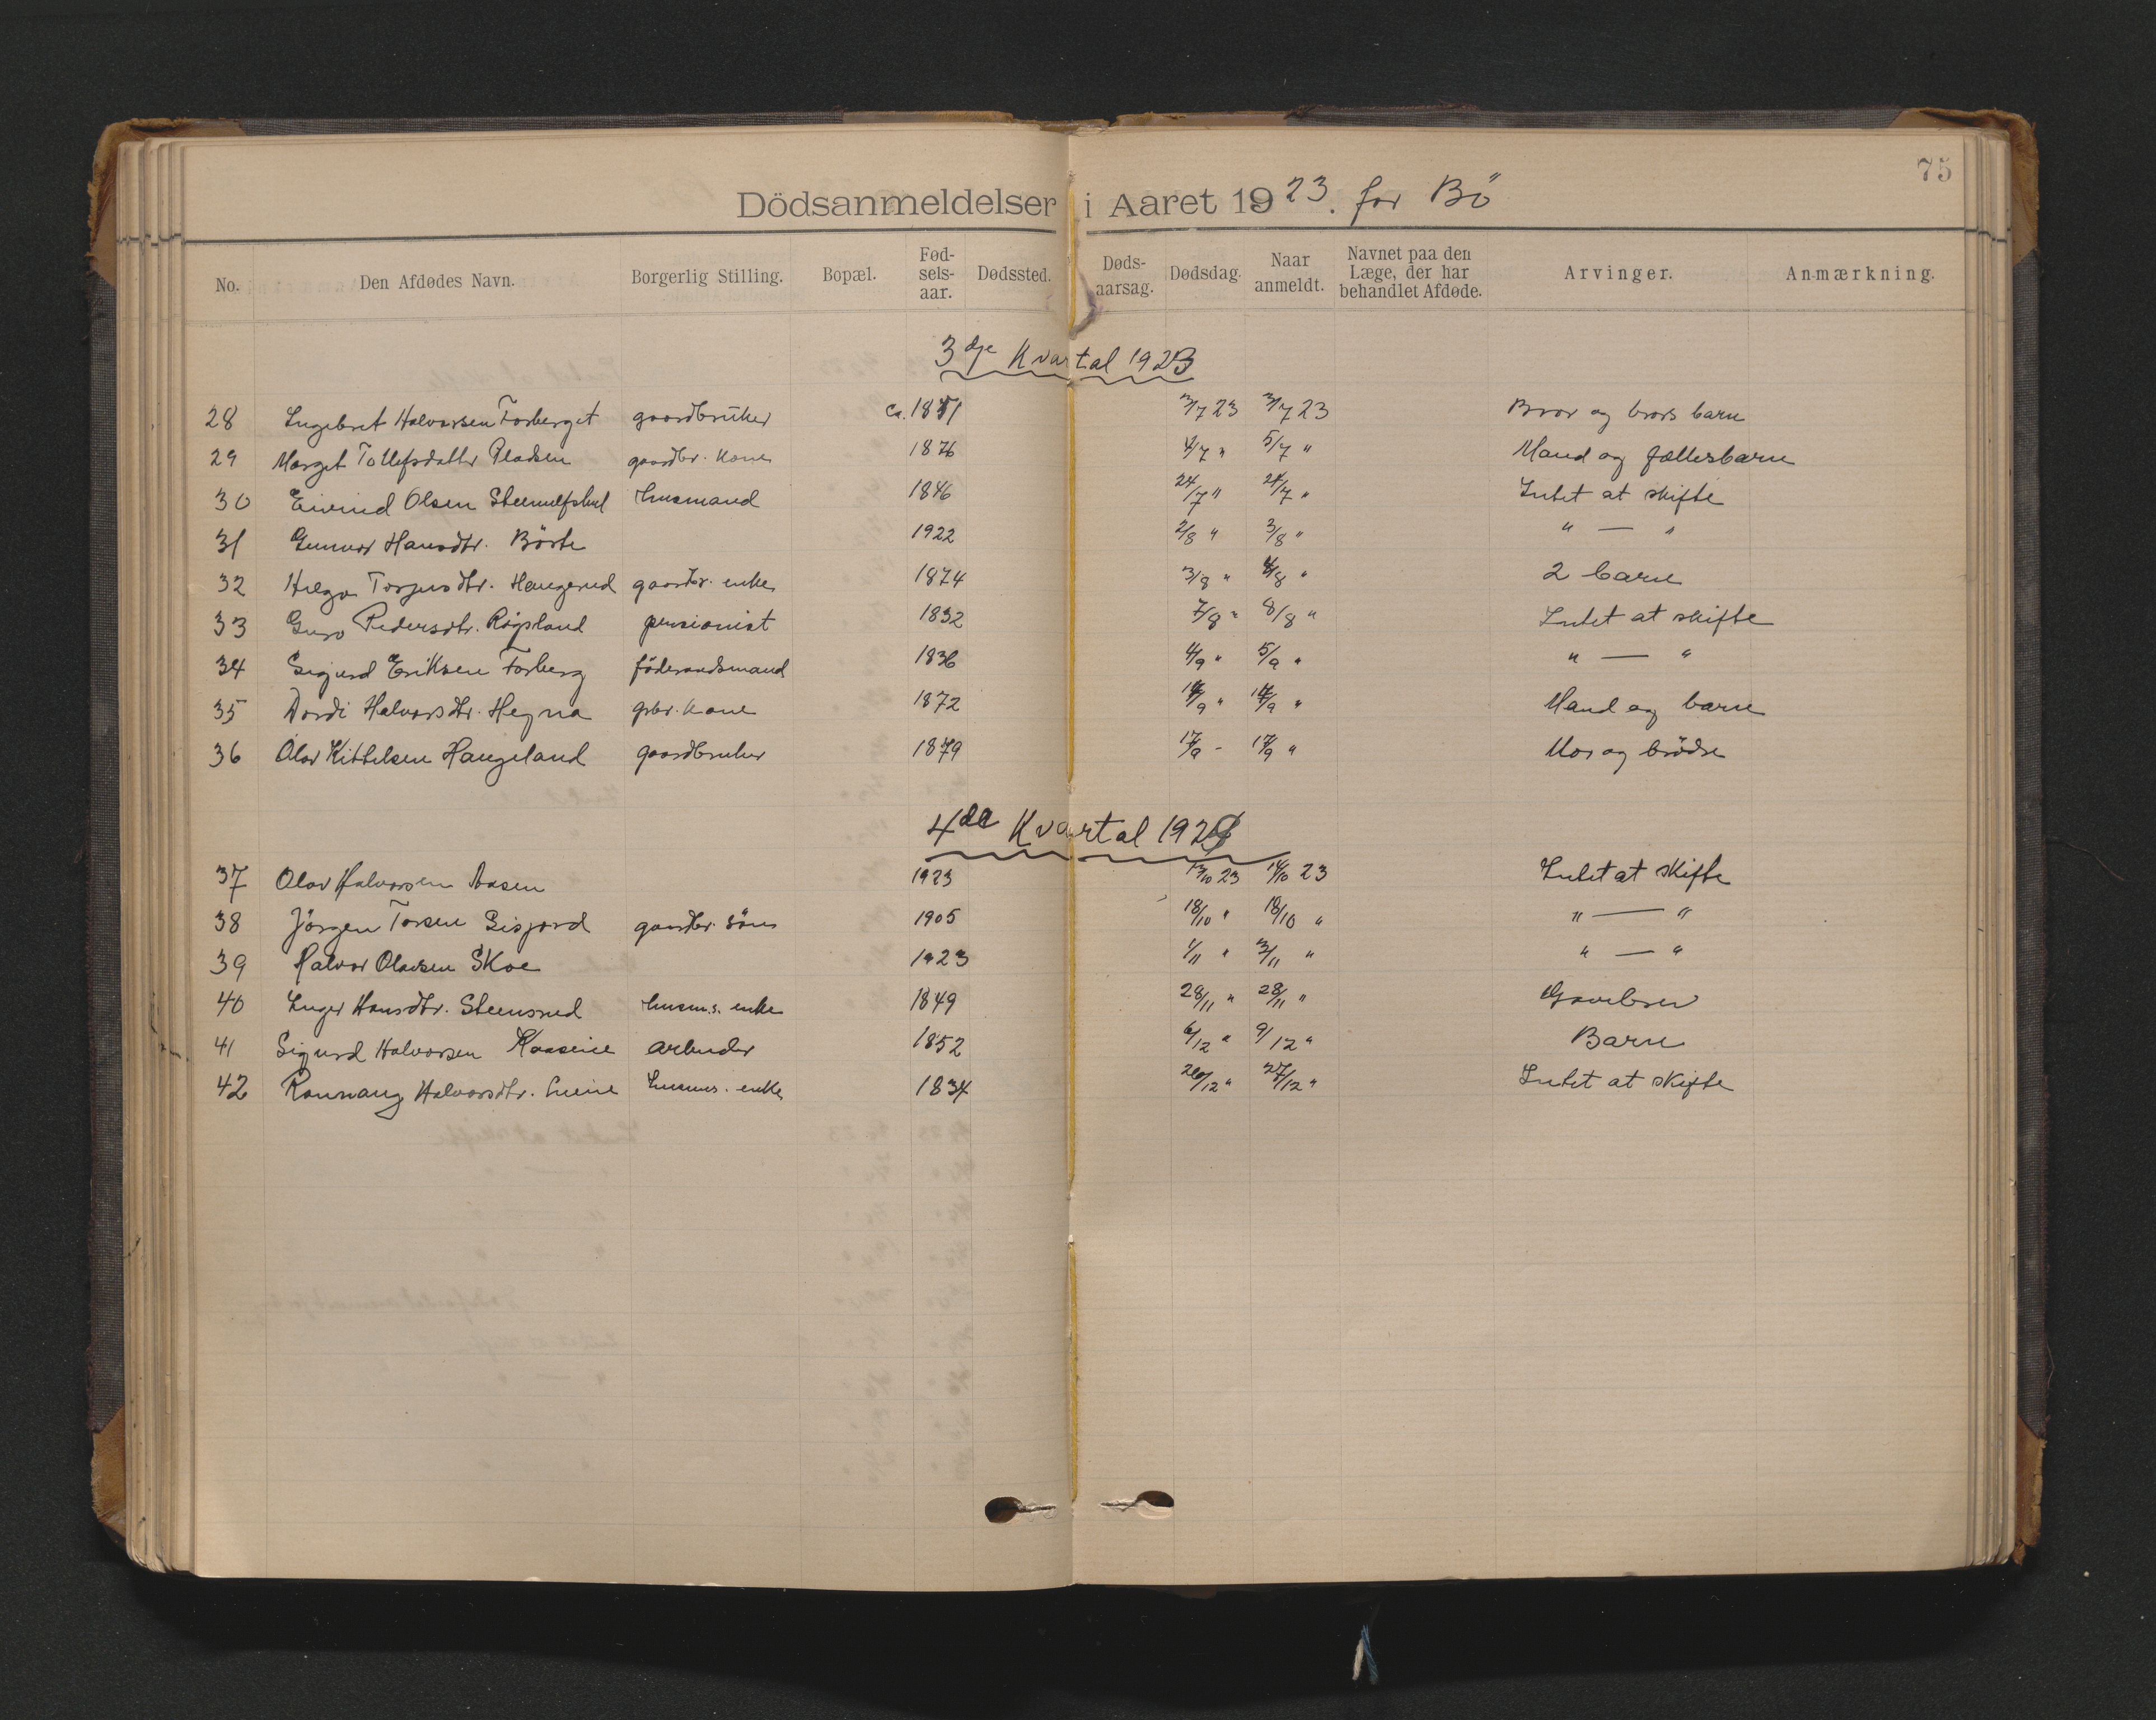 75
Dödsanmeldelser i Aaret 1923. for Bö
No. Den Afdødes Navn. Borgerlig Stilling. Bopæl. Fød-sels-aar. Dødssted. Døds-aarsag. Dødsdag. Naar anmeldt. Navnet paa den Læge, der har behandlet Afdøde. Arvinger. Anmærkning.
3dje Kvartal 1923
28 Ingebret Halvorsen Forberget gaardbruker ca. 1851 3/7 23 3/7 23 Bror og brors barn
29 Marget Tollefsdatter gaardbr. kone 1876 4/7 " 5/7 " Mand og fællesbarn
30 Eivind Olsen husmand 1846 24/7 " 24/7 " Intet at skifte
31 Gunvor Hansdtr. Börte 1922 2/8 " 3/8 " " — "
32 Helga Torjusdtr. Haugerud gaardbr. enke 1874 3/8 " 4/8 " 2 barn
33 Guro Pedersdtr. pensionist 1832 7/8 " 8/8 " Intet at skifte
34 Sigurd Eriksen Forberg föderaadsmand 1836 4/9 " 5/9 " " — "
35 Dordi Halvorsdtr. Hegna gbr. kone 1872 14/9 " 14/9 " Mand og barn
36 Olav Kittelsen Haugeland gaardbruker 1879 17/9 - 17/9 " Mor og brödre
4de Kvartal 1923
37 Olav Halvorsen Aasen 1923 13/10 23 14/10 23 Intet at skifte
38 Jörgen Torsen Eisjord gaardbr. sön 1905 18/10 " 18/10 " " — "
39 Halvor Olavsen Skoe 1923 1/11 " 3/11 " " — "
40 Inger Hansdtr. Steensrud husm.s. enke 1849 28/11 " 28/11 " Gavebrev
41 Sigurd Halvorsen arbeider 1852 6/12 " 9/12 " Barn
42 Rannaug Halvorsdtr. husms. enke 1834 26/12 " 27/12 " Intet at skifte